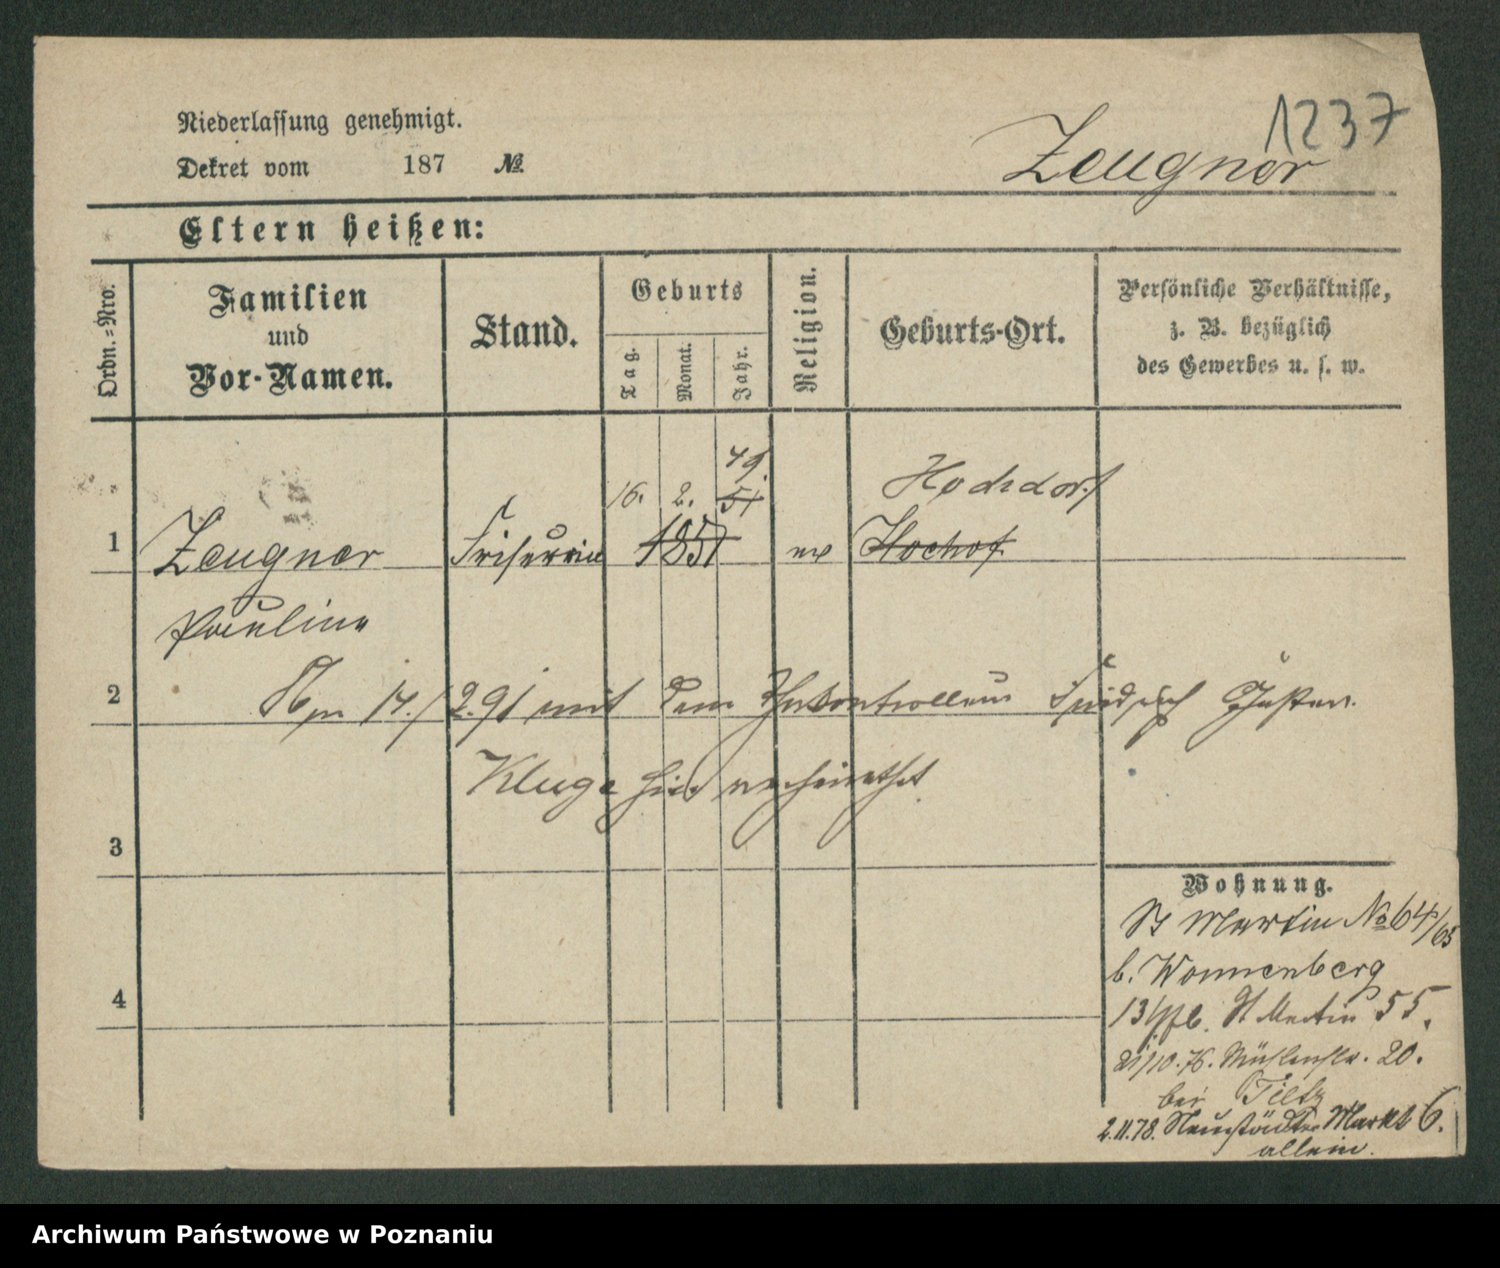 1237
Niederlassung genehmigt.
Dekret vom 187 №.
Zeugner
Eltern heißen:
Ordn.=Nro.
Familien
und
Vor-Namen.
Stand.
Geburts
Tag.
Monat.
Jahr.
Religion.
Geburts-Ort.
Persönliche Verhältnisse,
z. B. bezüglich
des Gewerbes u. s. w.
49.
16. 2. 51
Hochdorf
1 Zeugner Friseurin 1851 Hochof
Pauline
2 14./2.91 mit dem Friedrich
Kluge hier verheirathet
3
Wohnung.
St Martin No 64/65
b. Wonnenberg
St Martin 55.
4
21/10.76. Mühlenstr. 20.
bei Tiltz
2.11.78. Neustädter Markt 6.
allein.
Archiwum Państwowe w Poznaniu